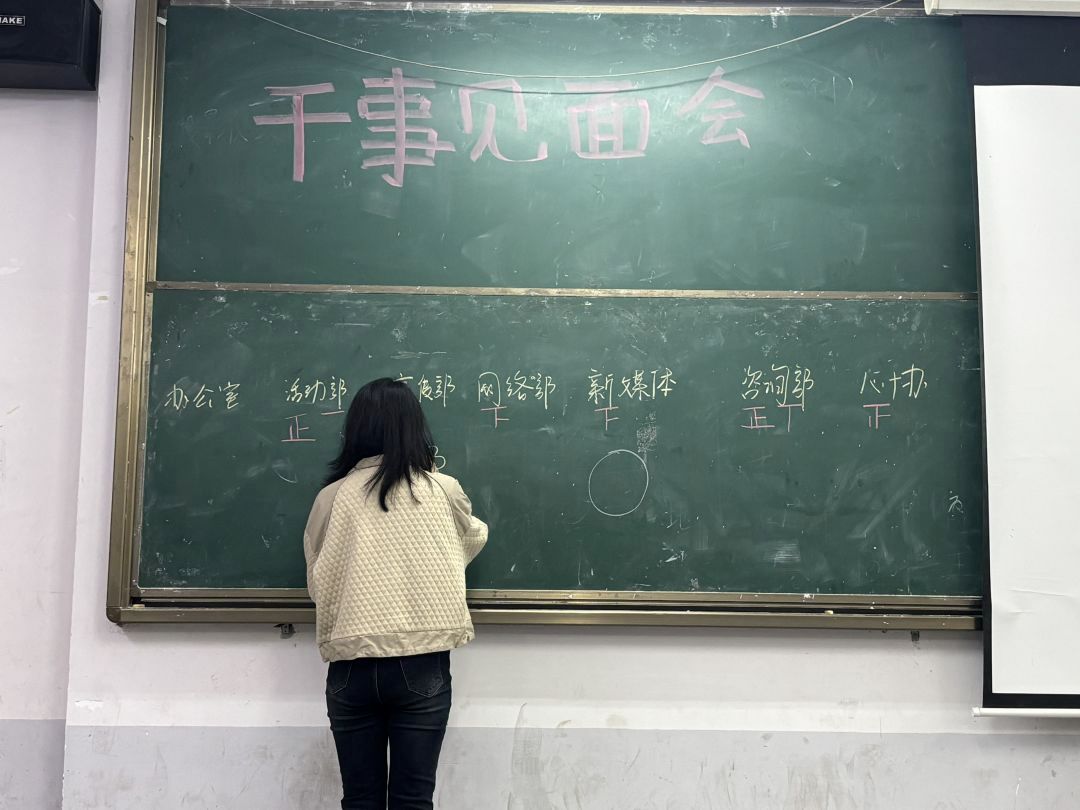 干事见面会
办公室 活动部 度部 网络部 新媒体 咨询部 心协办
正 一 下 下 正 丅 正